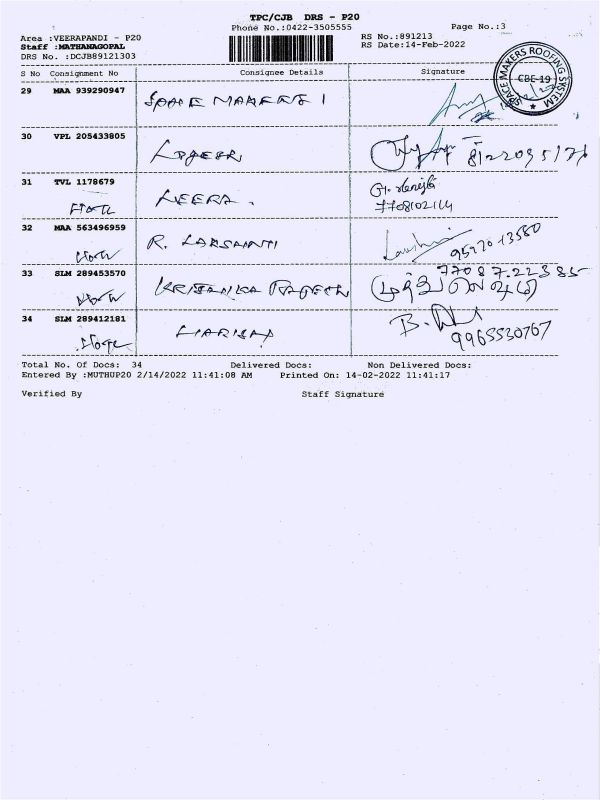 TPC/CJB DRS - P20
Phone No.:0422-3505555
Page No.:3
Area :VEERAPANDI - P20
RS No.:891213
Staff :MATHANAGOPAL
RS Date:14-Feb-2022
DRS No. :DCJB89121303
SPACE MAKERS ROOFING SYSTEM
CBE-19
S No Consignment No Consignee Details Signature
29 MAA 939290947 SPACE MAKERS
30 VPL 205433805
31 TVL 1178679 NEERA.
7708102164
32 MAA 563496959 R. LAKSHANTI
9597013580
33 SLM 289453570
77087.22385
34 SLM 289412181
9965530767
Total No. Of Docs: 34 Delivered Docs: Non Delivered Docs:
Entered By :MUTHUP20 2/14/2022 11:41:08 AM Printed On: 14-02-2022 11:41:17
Verified By Staff Signature